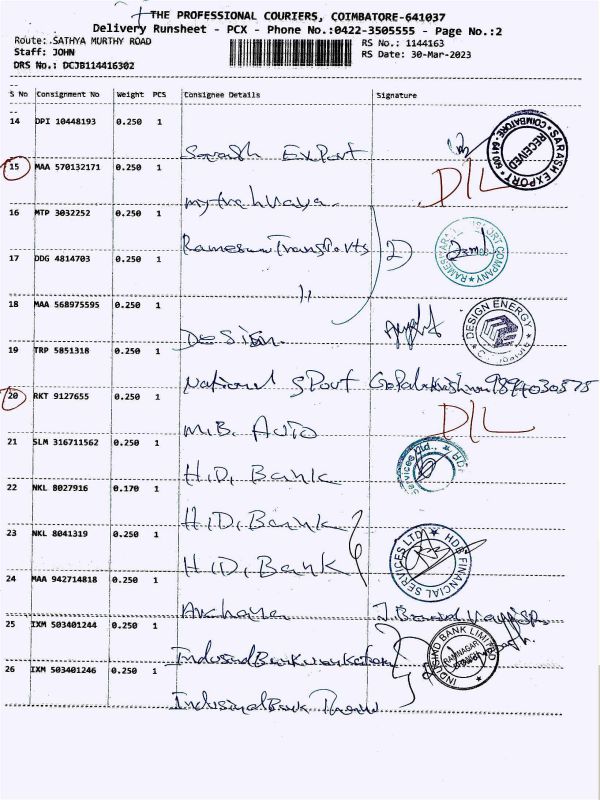 THE PROFESSIONAL COURIERS, COIMBATORE-641037
Delivery Runsheet - PCX - Phone No.:0422-3505555 - Page No.:2
Route: SATHYA MURTHY ROAD
RS No.: 1144163
Staff: JOHN
RS Date: 30-Mar-2023
DRS No.: DCJB114416302
S No Consignment No Weight PCS Consignee Details Signature
14 DPI 10448193 0.250 1
Sarash Export
SARASH EXPORT COIMBATORE - 641 009 RECEIVED
15 MAA 570132171 0.250 1
D/L
16 MTP 3032252 0.250 1
Transports 2
RAMESWARA TRANSPORT COMPANY
17 DDG 4814703 0.250 1
"
18 MAA 568975595 0.250 1
Design
DESIGN ENERGY
19 TRP 5851318 0.250 1
National Sport Gopalakrishnan 9894030575
20 RKT 9127655 0.250 1
M.B. Auto
D/L
21 SLM 316711562 0.250 1
H.D. Bank
22 NKL 8027916 0.170 1
H.D. Bank
23 NKL 8041319 0.250 1
H.D. Bank
HDB FINANCIAL SERVICES LTD
24 MAA 942714818 0.250 1
25 IXM 503401244 0.250 1
Indusind Bank
INDUSIND BANK LIMITED RAMNAGAR BRANCH
26 IXM 503401246 0.250 1
Indusind Bank